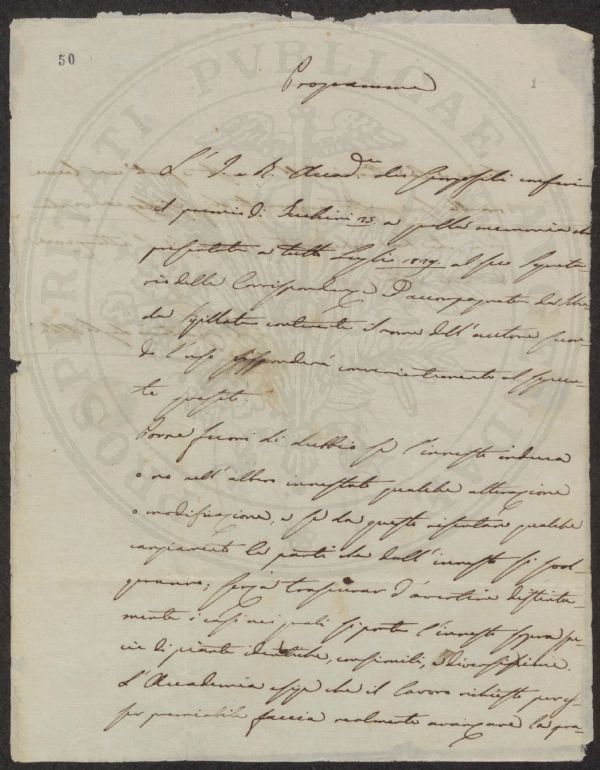 50
1
Programma
L'I. e R. Accad. dei Georgofili conferirà
il premio di Zecchini 25 a quella memoria che
presentata a tutto Luglio 1829 al suo Segreta-
rio delle Corrispondenze accompagnata da Sche-
da sigillata contenente il nome dell'autore secon-
do l'uso risponderà convenientemente al seguen-
te quesito
Porre fuori di dubbio se l'innesto induca
o no nell'albero innestato qualche alterazione
o modificazione, e se da questo risentano qualche
cangiamento le parti che dall'innesto si svol-
geranno; senza trascurar d'avvertire distinta-
mente i casi nei quali si porta l'innesto sopra spe-
cie di piante identiche, consimili, e diversissime.
L'Accademia esige che il lavoro richiesto per es-
ser premiabile faccia realmente avanzare la pra-
PROSPERITATI PUBLICAE AUGENDAE